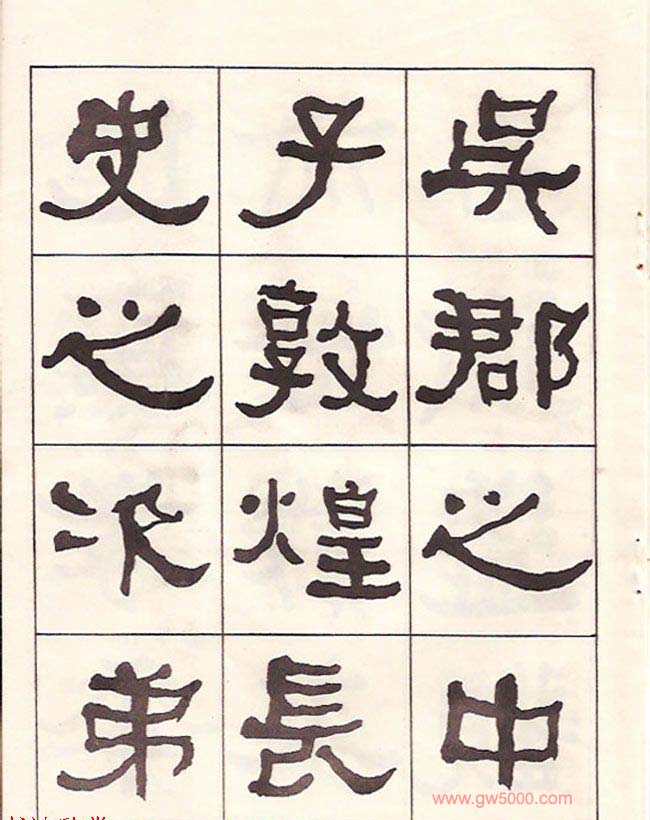 吳郡之中
子敦煌長
史之次弟
www.gw5000.com